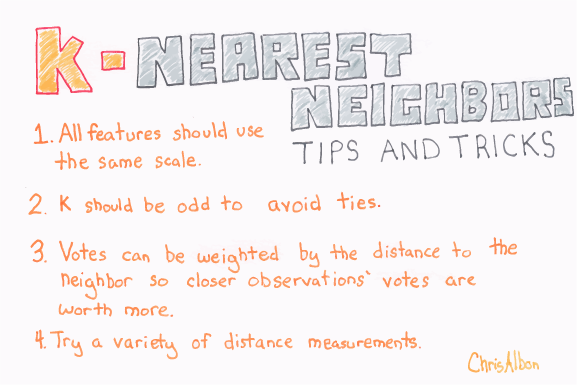 K-NEAREST
NEIGHBORS
TIPS AND TRICKS
1. All features should use
the same scale.
2. K should be odd to avoid ties.
3. Votes can be weighted by the distance to the
neighbor so closer observations' votes are
worth more.
4. Try a variety of distance measurements.
ChrisAlbon